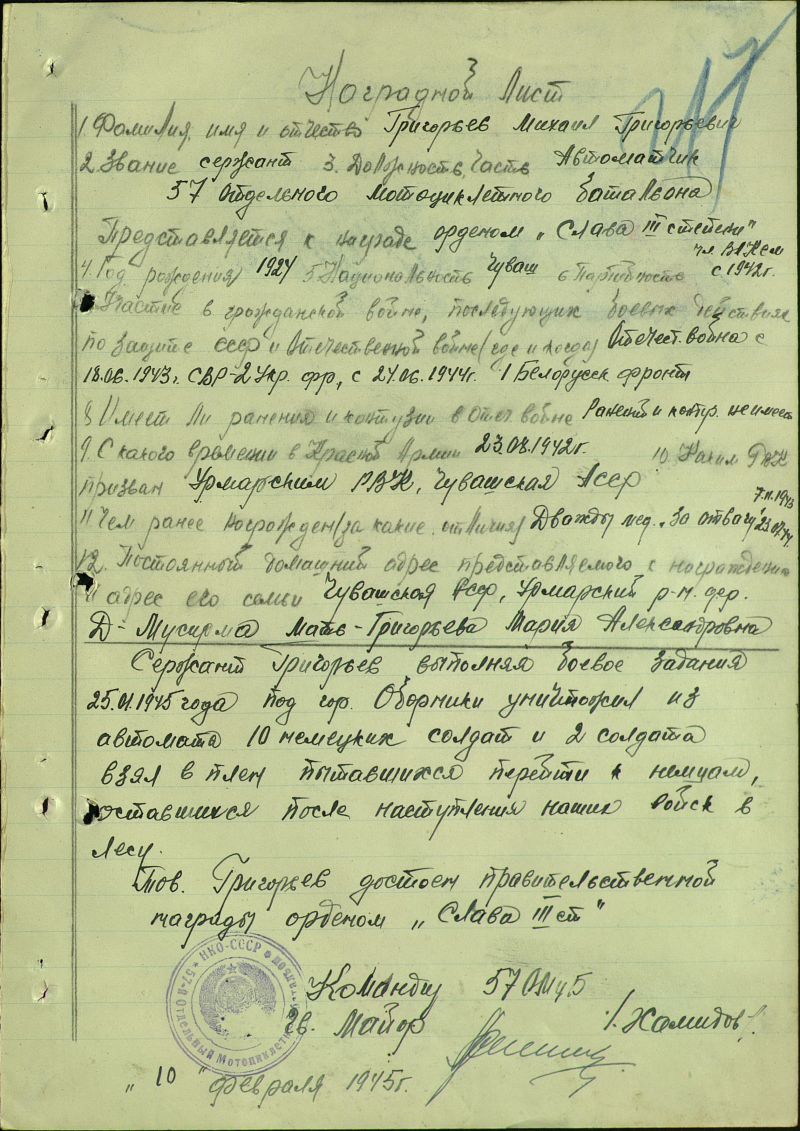 217
Наградной Лист
1. Фамилия, имя и отчество Григорьев Михаил Григорьевич
2. Звание сержант 3. Должность, часть Автоматчик
57 отдельного мотоциклетного батальона
Представляется к награде орденом „Слава III степени"
4. Год рождения 1924 5. Национальность Чуваш 6 Партийность чл. ВЛКСМ с 1942г.
Участие в гражданской войне, последующих боевых действиях
по защите СССР и Отечественной войне (где и когда) Отечест. война с
18.06.1943г. СВР-2 Укр. фр, с 24.06.1944г. 1 Белорусск фронт
8 Имеет ли ранения и контузии в отеч. войне Ранений и контуз. не имеет
9. С какого времени в Красной Армии 23.08.1942г. 10. Каким РВК
призван Урмарским РВК, Чувашская АССР
11 Чем ранее награжден (за какие отличия) Дважды мед. „За отвагу" 7.11.1943 23.07.44.
12. Постоянный домашний адрес представляемого к награждению
и адрес его семьи Чувашская АССР, Урмарский р-н. дер.
Д-Мусирма Мать-Григорьева Мария Александровна
Сержант Григорьев выполняя боевое задания
25.01.1945 года под гор. Оборники уничтожил из
автомата 10 немецких солдат и 2 солдата
взял в плен пытавшихся перейти к немцам,
оставшихся после наступления наших войск в
лесу.
Тов. Григорьев достоен правительственной
награды орденом „Слава III ст"
Командир 57 ОМЦБ
Гв. Майор /Хамидов/
НКО-СССР 57-й Отдельный Мотоциклетный
„10" февраля 1945г.